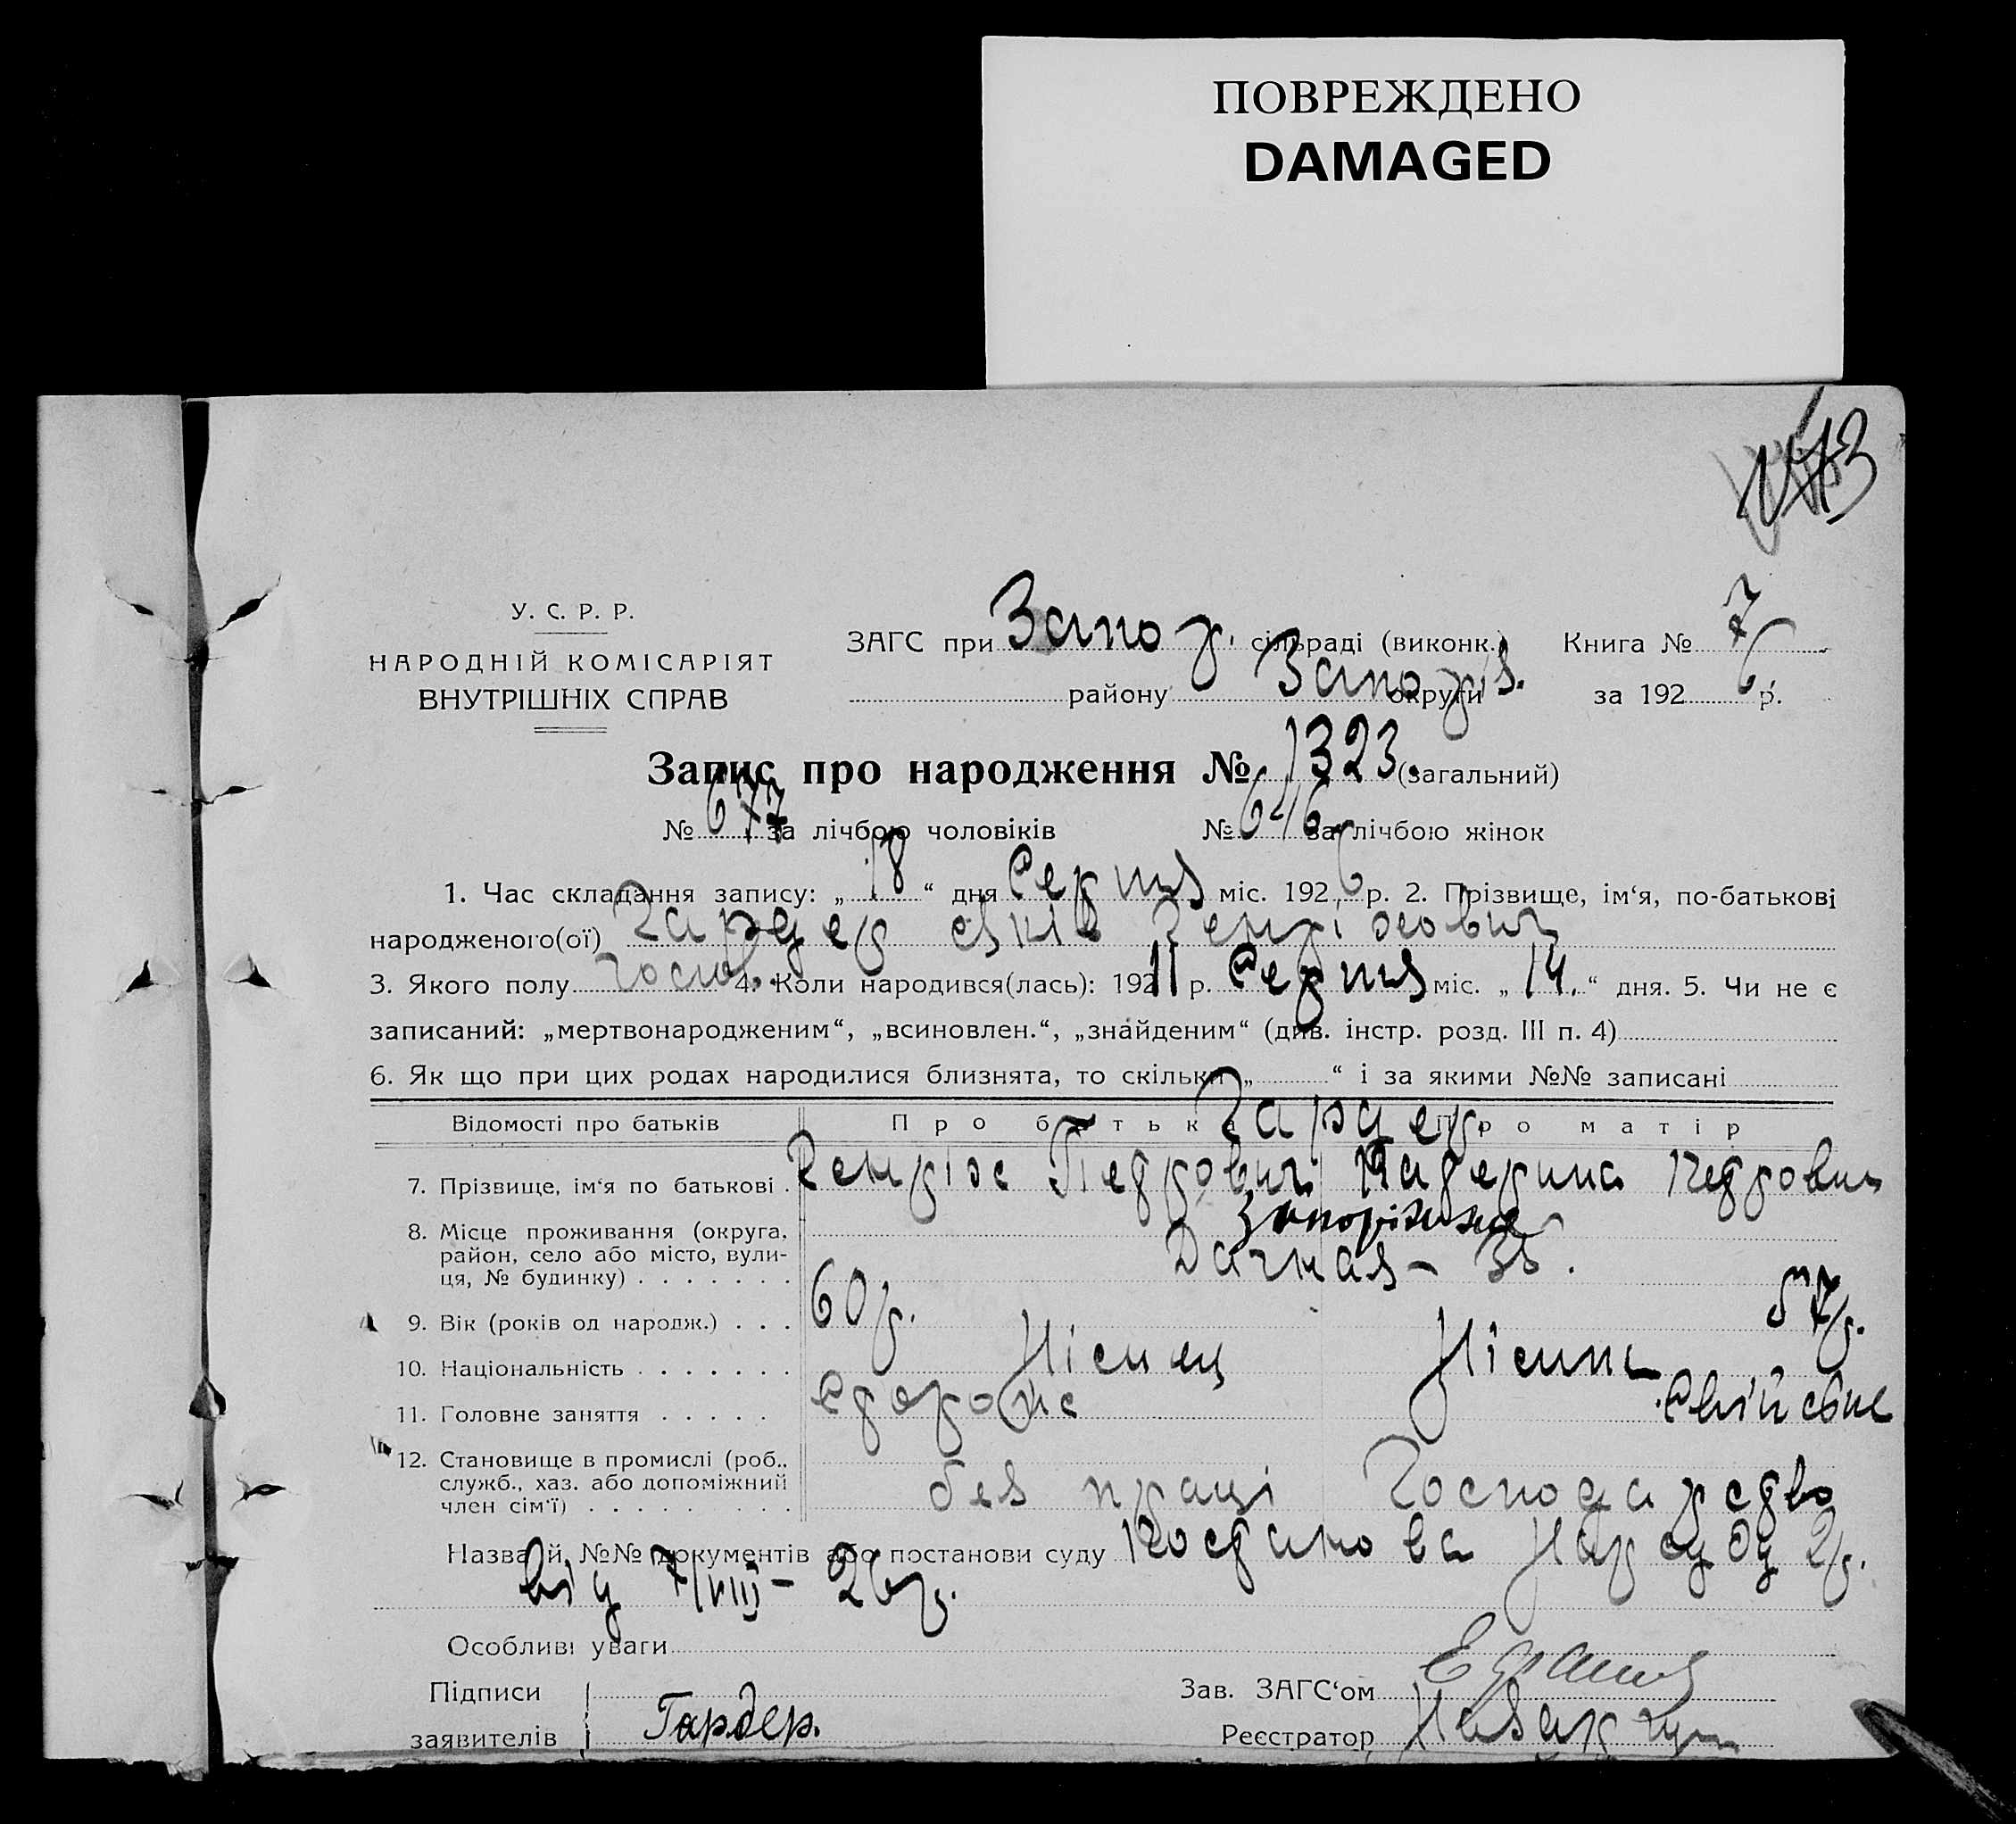 ПОВРЕЖДЕНО
DAMAGED
У. С. Р. Р.
НАРОДНІЙ КОМІСАРІЯТ
ВНУТРІШНІХ СПРАВ
ЗАГС при Запор. сільраді (виконк.) Книга № 7
району Запоріз. округи за 1926 р.
Запис про народження № 1323 (загальний)
№ 677 за лічбою чоловіків № 646 за лічбою жінок
1. Час складання запису: „ 18 “ дня Серпня міс. 1926 р. 2. Прізвище, ім‘я, по-батькові
народженого(ої) Гардер Яків Генріхович
3. Якого полу 4. Коли народився(лась): 192 11 р. Серпня міс. „ 14. “ дня. 5. Чи не є
записаний: „мертвонародженим“, „всиновлен.“, „знайденим“ (див. інстр. розд. III п. 4)
6. Як що при цих родах народилися близнята, то скільки „ “ і за якими №№ записані
Відомості про батьків Про батька Про матір
Гардер
7. Прізвище, ім‘я по батькові . Генріх Петрович Катерина Петровна
8. Місце проживання (округа, район, село або місто, вулиця, № будинку) . . . . . . . Запоріжжя
Дачная – 35.
9. Вік (років од народж.) . . . 60 р. 57 р.
10. Національність . . . . . . . Німець Німка
11. Головне заняття . . . . .
12. Становище в промислі (роб., служб., хаз. або допоміжний член сім‘ї) . . . . . . . . . без праці Господарство
Назва й №№ документів або постанови суду Постанова Нарсуду 2 р.
від 7/VIII – 26 р.
Особливі уваги
Підписи заявителів Гардер.
Зав. ЗАГС‘ом
Реєстратор